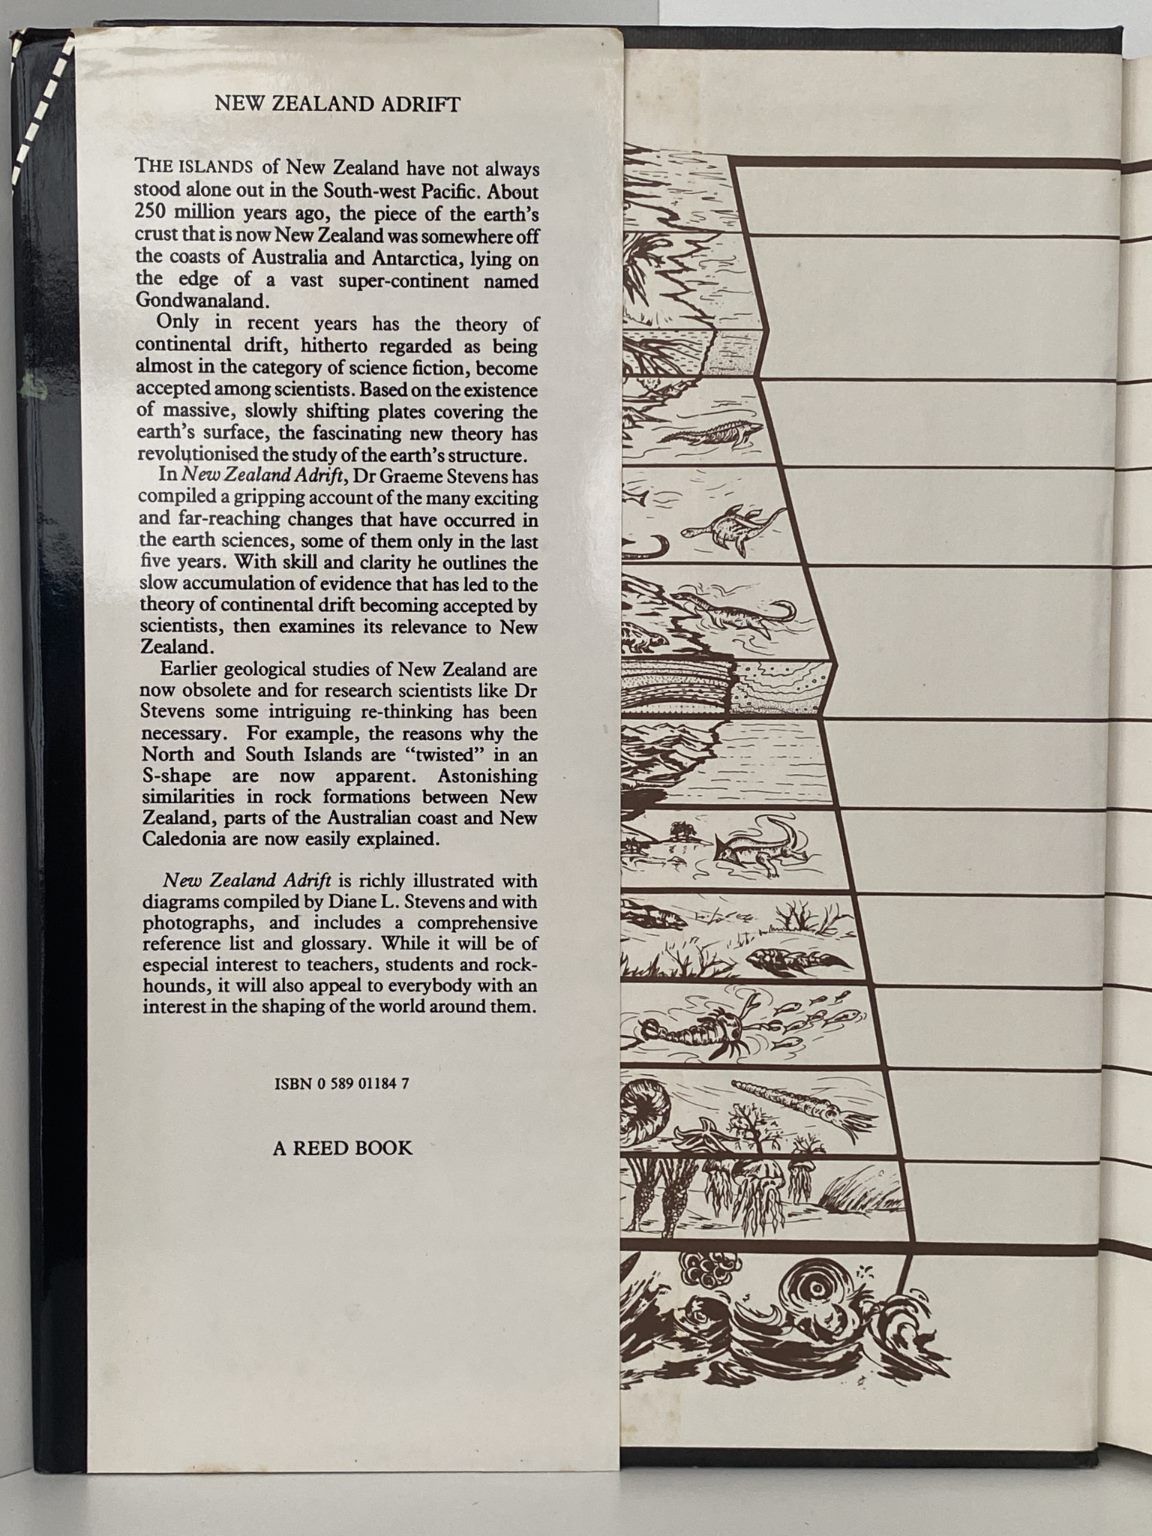 NEW ZEALAND ADRIFT
THE ISLANDS of New Zealand have not always
stood alone out in the South-west Pacific. About
250 million years ago, the piece of the earth's
crust that is now New Zealand was somewhere off
the coasts of Australia and Antarctica, lying on
the edge of a vast super-continent named
Gondwanaland.
Only in recent years has the theory of
continental drift, hitherto regarded as being
almost in the category of science fiction, become
accepted among scientists. Based on the existence
of massive, slowly shifting plates covering the
earth's surface, the fascinating new theory has
revolutionised the study of the earth's structure.
In New Zealand Adrift, Dr Graeme Stevens has
compiled a gripping account of the many exciting
and far-reaching changes that have occurred in
the earth sciences, some of them only in the last
five years. With skill and clarity he outlines the
slow accumulation of evidence that has led to the
theory of continental drift becoming accepted by
scientists, then examines its relevance to New
Zealand.
Earlier geological studies of New Zealand are
now obsolete and for research scientists like Dr
Stevens some intriguing re-thinking has been
necessary. For example, the reasons why the
North and South Islands are “twisted” in an
S-shape are now apparent. Astonishing
similarities in rock formations between New
Zealand, parts of the Australian coast and New
Caledonia are now easily explained.
New Zealand Adrift is richly illustrated with
diagrams compiled by Diane L. Stevens and with
photographs, and includes a comprehensive
reference list and glossary. While it will be of
especial interest to teachers, students and rock-
hounds, it will also appeal to everybody with an
interest in the shaping of the world around them.
ISBN 0 589 01184 7
A REED BOOK